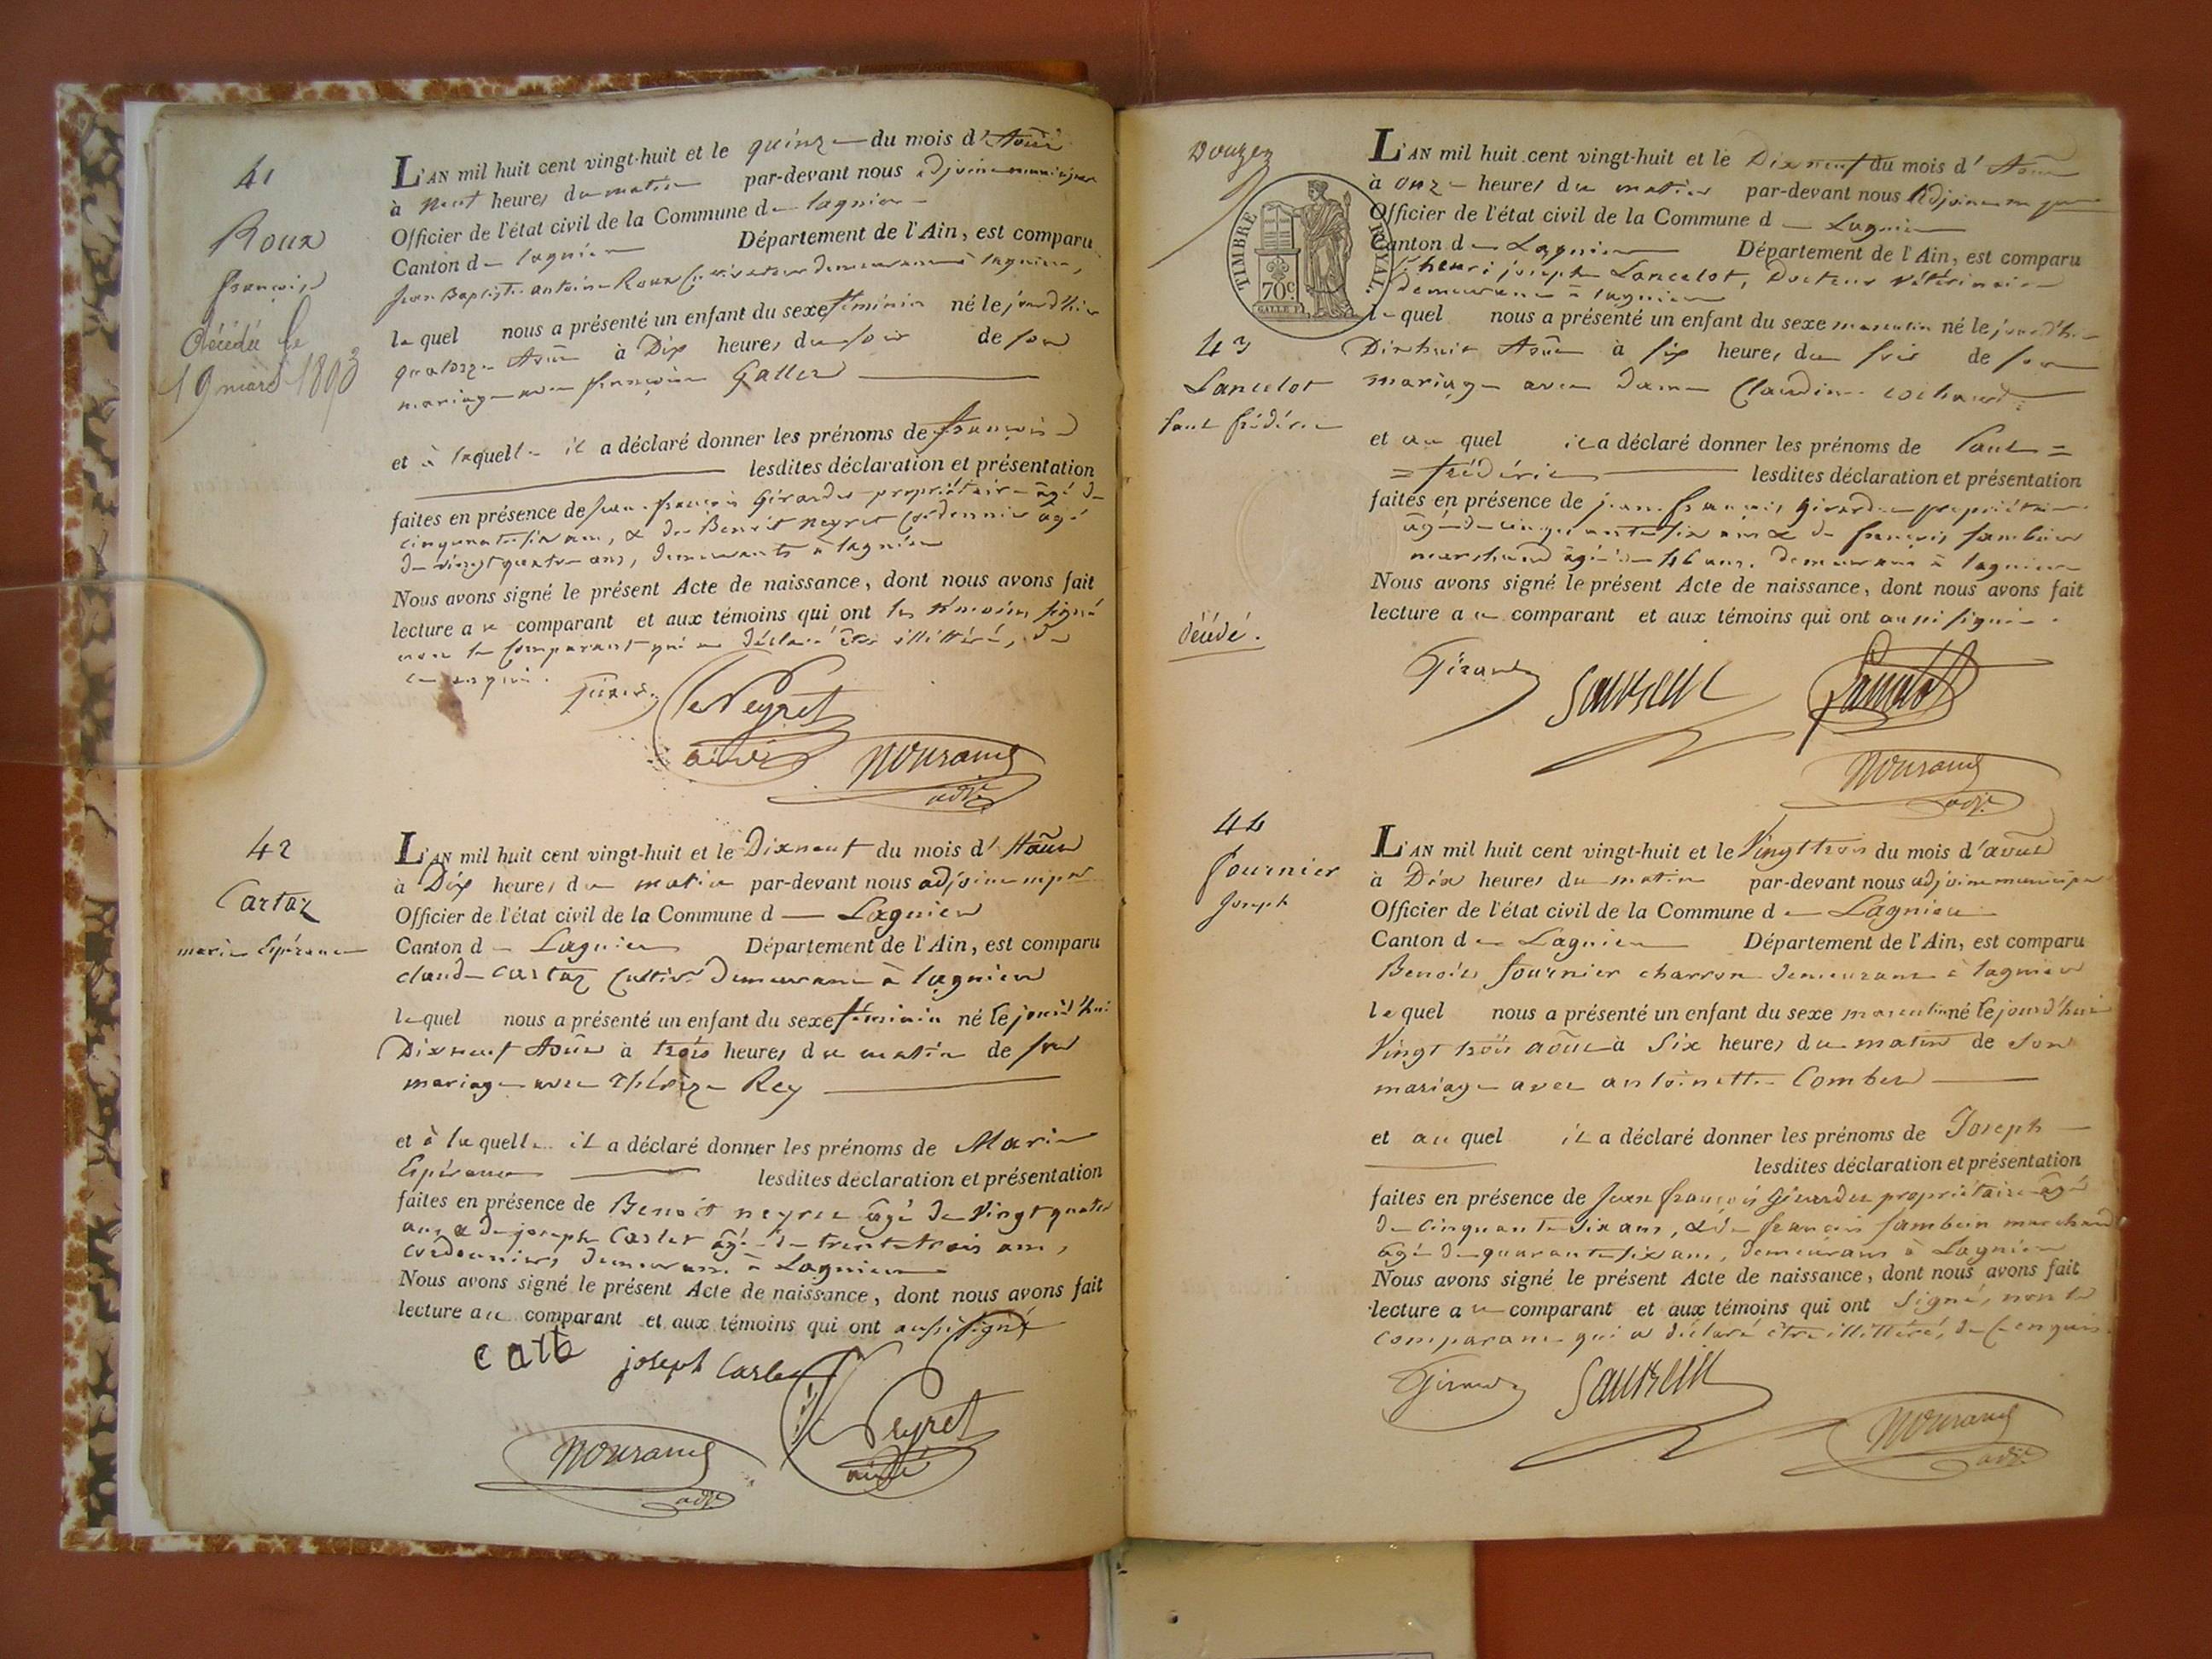 41
Roux
françoise
décédée le
19 mars 1893
L'AN mil huit cent vingt-huit et le quinze du mois d'Août
à neuf heures du matin par-devant nous adjoint municipal
Officier de l'état civil de la Commune de lagnieu
Canton de lagnieu Département de l'Ain, est comparu
Jean Baptiste antoine Roux Cultivateur demeurant à lagnieu,
lequel nous a présenté un enfant du sexe féminin né le jourd'hier
quatorze Août à Dix heures du soir de son
mariage avec françoise Gallet
et à laquelle il a déclaré donner les prénoms de françoise
lesdites déclaration et présentation
faites en présence de Jean-françois Girardet propriétaire âgé de
cinquante six ans, & de Benoit Neyret Cordonnier âgé
de vingt quatre ans, demeurants à lagnieu
Nous avons signé le présent Acte de naissance, dont nous avons fait
lecture au comparant et aux témoins qui ont les témoins signé
non le Comparant qui a déclaré être illittéré, de
ce enquis.
Girard
Neyret
ainé
adjt
42
Cartaz
marie Espérance
L'AN mil huit cent vingt-huit et le Dixneuf du mois d'Août
à Dix heures du matin par-devant nous adjoint mpal
Officier de l'état civil de la Commune d Lagnieu
Canton d Lagnieu Département de l'Ain, est comparu
claude Cartaz Cultivr demeurant à lagnieu
lequel nous a présenté un enfant du sexe féminin né le jourd'hui
Dixneuf Août à trois heures du matin de son
mariage avec Thérèze Rey
et à laquelle il a déclaré donner les prénoms de Marie
Espérance lesdites déclaration et présentation
faites en présence de Benoit neyret âgé de vingt quatre
ans & de joseph Carlet âgé de trente trois ans,
cordonniers demeurans à Lagnieu
Nous avons signé le présent Acte de naissance, dont nous avons fait
lecture au comparant et aux témoins qui ont aussi signé
joseph Carlet
Neyret
ainé
adjt
Douzez
TIMBRE ROYAL.
70c
43
Lancelot
Paul frédéric
décédé.
L'AN mil huit cent vingt-huit et le Dixneuf du mois d'Août
à onze heures du matin par-devant nous Adjoint
Officier de l'état civil de la Commune d Lagnieu
Canton de Lagnieu Département de l'Ain, est comparu
Sr henri joseph Lancelot, Docteur Vétérinaire
demeurant à lagnieu
lequel nous a présenté un enfant du sexe masculin né le jourd'hier
Dixhuit Août à six heures du soir de son
mariage avec dame Claudine cochard
et au quel il a déclaré donner les prénoms de Paul =
= frédéric lesdites déclaration et présentation
faites en présence de jean-françois Girardet propriétaire
âgé de cinquante six ans & de françois sambein
marchand âgé de 46 ans. demeurans à lagnieu
Nous avons signé le présent Acte de naissance, dont nous avons fait
lecture au comparant et aux témoins qui ont aussi signé.
Girard
Lancelot
adjt
44
fournier
Joseph
L'AN mil huit cent vingt-huit et le Vingt trois du mois d'août
à Dix heures du matin par-devant nous adjoint municipal
Officier de l'état civil de la Commune de Lagnieu
Canton de Lagnieu Département de l'Ain, est comparu
Benoit fournier charron demeurant à lagnieu
lequel nous a présenté un enfant du sexe masculin né le jourd'hui
Vingt trois août à Six heures du matin de Son
mariage avec antoinette Combet
et au quel il a déclaré donner les prénoms de Joseph
lesdites déclaration et présentation
faites en présence de Jean françois Girardet propriétaire âgé
de cinquante Six ans, & de françois sambein marchand
âgé de quarante six ans, demeurans à Lagnieu
Nous avons signé le présent Acte de naissance, dont nous avons fait
lecture au comparant et aux témoins qui ont Signé, non le
comparant qui a déclaré être illittéré, de ce enquis
Girard
adjt